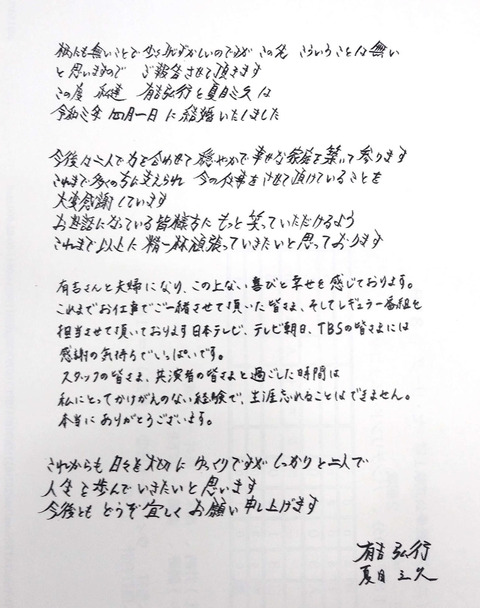 柄にも無いことで少々恥ずかしいのですが この先 こういうことは無い
と思いますので ご報告させて頂きます
この度 私達 有吉弘行と夏目三久は
令和三年 四月一日 に 結婚いたしました
今後 二人で力を合わせて 穏やかで幸せな家庭を築いて参ります
これまで多くの方に支えられ 今の仕事をさせて頂けていることを
大変感謝しています
お世話になっている皆様方に もっと笑っていただけるよう
これまで以上に 精一杯頑張っていきたいと思っております
有吉さんと夫婦になり、この上ない喜びと幸せを感じております。
これまでお仕事でご一緒させて頂いた皆さま、そしてレギュラー番組を
担当させて頂いております日本テレビ、テレビ朝日、TBSの皆さまには
感謝の気持ちでいっぱいです。
スタッフの皆さま、共演者の皆さまと過ごした時間は
私にとってかけがえのない経験で、生涯忘れることはできません。
本当にありがとうございます。
これからも 日々を大切に ゆっくりですが しっかりと二人で
人生を歩んでいきたいと思います
今後とも どうぞ宜しく お願い申し上げます
有吉 弘行
夏目 三久